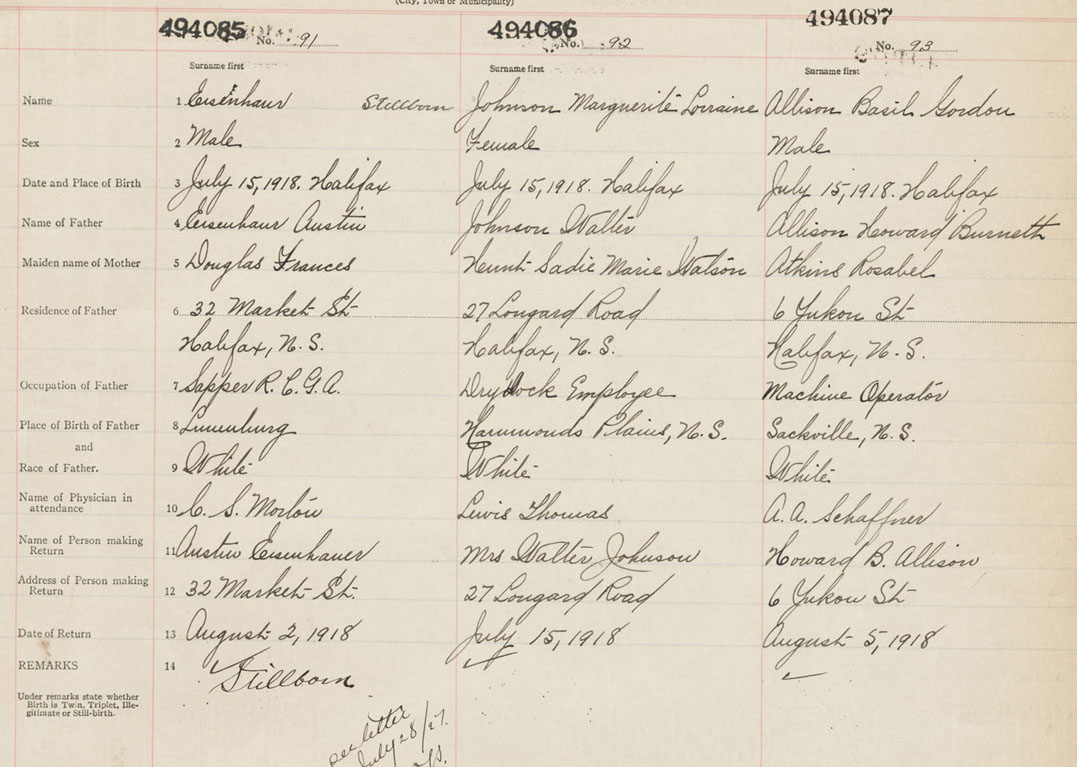 (City, Town or Municipality)
494085 494086 494087
No. 91 No. 92 No. 93
Surname first Surname first Surname first
Name 1 Eisenhaur Stillborn Johnson Marguerite Lorraine Allison Basil Gordon
Sex 2 Male Female Male
Date and Place of Birth 3 July 15, 1918. Halifax July 15, 1918. Halifax July 15, 1918. Halifax
Name of Father 4 Eisenhaur Austin Johnson Walter Allison Howard Burneth
Maiden name of Mother 5 Douglas Frances Hunt Sadie Marie Watson Atkins Rosabel
Residence of Father 6 32 Market St 27 Longard Road 6 Yukon St
Halifax, N.S. Halifax, N.S. Halifax, N.S.
Occupation of Father 7 Sapper R.C.G.A. Dry dock Employee Machine Operator
Place of Birth of Father 8 Lunenburg Hammonds Plains, N.S. Sackville, N.S.
and
Race of Father. 9 White White White
Name of Physician in
attendance 10 C. S. Morton Lewis Thomas A.A. Schaffner
Name of Person making
Return 11 Austin Eisenhauer Mrs Walter Johnson Howard B. Allison
Address of Person making
Return 12 32 Market St. 27 Longard Road 6 Yukon St
Date of Return 13 August 2, 1918 July 15, 1918 August 5, 1918
REMARKS 14 Stillborn
Under remarks state whether
Birth is Twin, Triplet, Ille-
gitimate or Still-birth.
per letter
July 28/27.